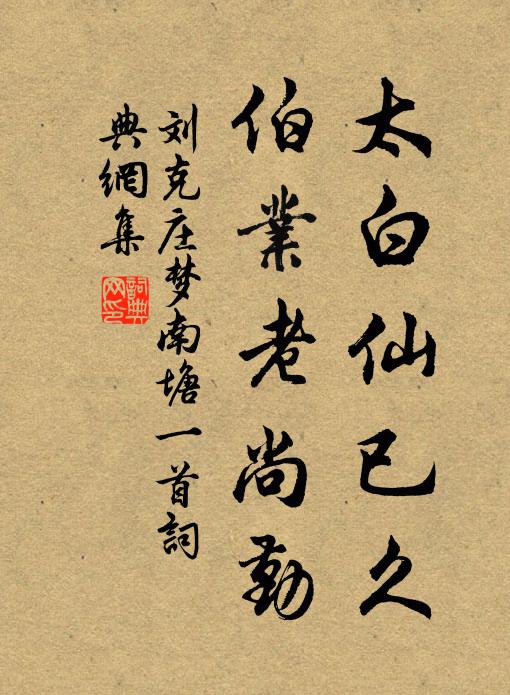 太白仙已久
伯業老尚勤
刘克庄梦南塘一首詞
典網集
詞典
网印